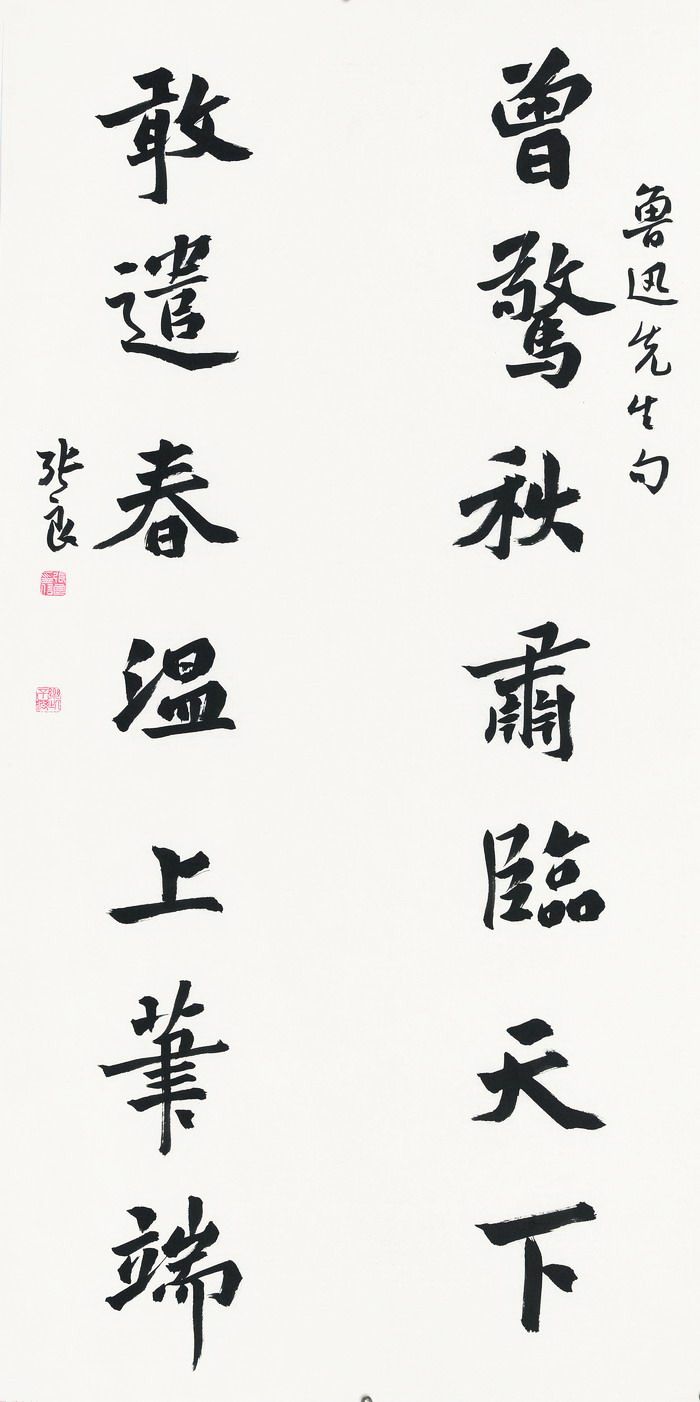 魯迅先生句
曾驚秋肅臨天下
敢遣春溫上筆端
張良